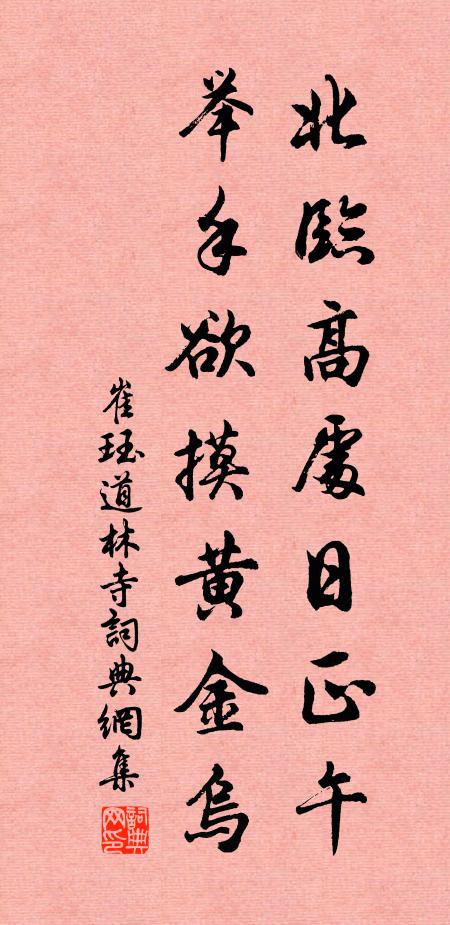 北臨高處日正午
举手欲摸黃金烏
崔珏道林寺詞典網集
詞典网印